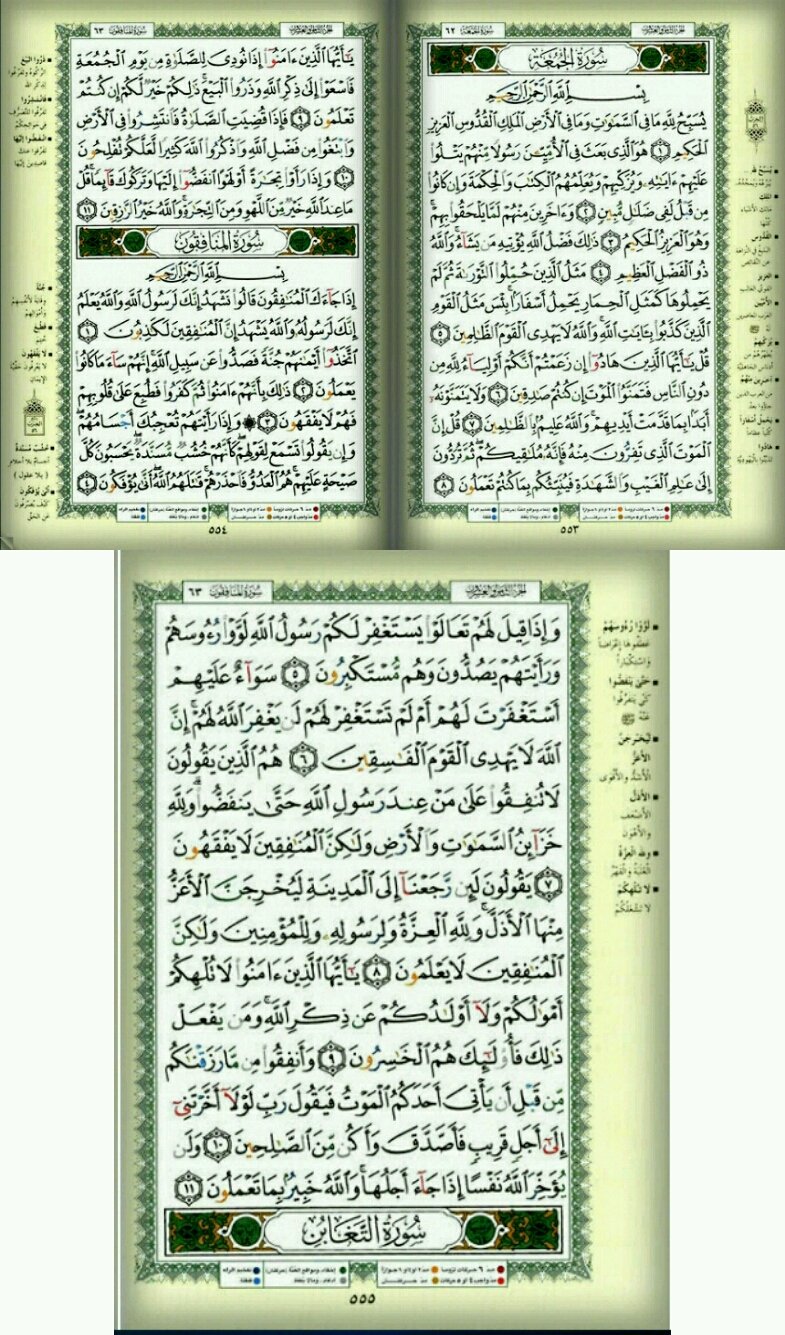 الجزء الثامن والعشرون
سورة الجمعة ٦٢
سُورَةُ الجُمُعَةِ
بِسْمِ ٱللَّهِ ٱلرَّحْمَٰنِ ٱلرَّحِيمِ
يُسَبِّحُ لِلَّهِ مَا فِى ٱلسَّمَٰوَٰتِ وَمَا فِى ٱلْأَرْضِ ٱلْمَلِكِ ٱلْقُدُّوسِ ٱلْعَزِيزِ
ٱلْحَكِيمِ ١ هُوَ ٱلَّذِى بَعَثَ فِى ٱلْأُمِّيِّـۧنَ رَسُولًا مِّنْهُمْ يَتْلُوا۟
عَلَيْهِمْ ءَايَٰتِهِۦ وَيُزَكِّيهِمْ وَيُعَلِّمُهُمُ ٱلْكِتَٰبَ وَٱلْحِكْمَةَ وَإِن كَانُوا۟
مِن قَبْلُ لَفِى ضَلَٰلٍ مُّبِينٍ ٢ وَءَاخَرِينَ مِنْهُمْ لَمَّا يَلْحَقُوا۟ بِهِمْ ۚ
وَهُوَ ٱلْعَزِيزُ ٱلْحَكِيمُ ٣ ذَٰلِكَ فَضْلُ ٱللَّهِ يُؤْتِيهِ مَن يَشَآءُ ۚ وَٱللَّهُ
ذُو ٱلْفَضْلِ ٱلْعَظِيمِ ٤ مَثَلُ ٱلَّذِينَ حُمِّلُوا۟ ٱلتَّوْرَىٰةَ ثُمَّ لَمْ
يَحْمِلُوهَا كَمَثَلِ ٱلْحِمَارِ يَحْمِلُ أَسْفَارًۢا ۚ بِئْسَ مَثَلُ ٱلْقَوْمِ
ٱلَّذِينَ كَذَّبُوا۟ بِـَٔايَٰتِ ٱللَّهِ ۚ وَٱللَّهُ لَا يَهْدِى ٱلْقَوْمَ ٱلظَّٰلِمِينَ ٥
قُلْ يَٰٓأَيُّهَا ٱلَّذِينَ هَادُوٓا۟ إِن زَعَمْتُمْ أَنَّكُمْ أَوْلِيَآءُ لِلَّهِ مِن
دُونِ ٱلنَّاسِ فَتَمَنَّوُا۟ ٱلْمَوْتَ إِن كُنتُمْ صَٰدِقِينَ ٦ وَلَا يَتَمَنَّوْنَهُۥٓ
أَبَدًۢا بِمَا قَدَّمَتْ أَيْدِيهِمْ ۚ وَٱللَّهُ عَلِيمٌۢ بِٱلظَّٰلِمِينَ ٧ قُلْ إِنَّ
ٱلْمَوْتَ ٱلَّذِى تَفِرُّونَ مِنْهُ فَإِنَّهُۥ مُلَٰقِيكُمْ ۖ ثُمَّ تُرَدُّونَ
إِلَىٰ عَٰلِمِ ٱلْغَيْبِ وَٱلشَّهَٰدَةِ فَيُنَبِّئُكُم بِمَا كُنتُمْ تَعْمَلُونَ ٨
٥٥٣
الجزء الثامن والعشرون
سورة المنافقون ٦٣
يَٰٓأَيُّهَا ٱلَّذِينَ ءَامَنُوٓا۟ إِذَا نُودِىَ لِلصَّلَوٰةِ مِن يَوْمِ ٱلْجُمُعَةِ
فَٱسْعَوْا۟ إِلَىٰ ذِكْرِ ٱللَّهِ وَذَرُوا۟ ٱلْبَيْعَ ۚ ذَٰلِكُمْ خَيْرٌ لَّكُمْ إِن كُنتُمْ
تَعْلَمُونَ ٩ فَإِذَا قُضِيَتِ ٱلصَّلَوٰةُ فَٱنتَشِرُوا۟ فِى ٱلْأَرْضِ
وَٱبْتَغُوا۟ مِن فَضْلِ ٱللَّهِ وَٱذْكُرُوا۟ ٱللَّهَ كَثِيرًا لَّعَلَّكُمْ تُفْلِحُونَ
١٠ وَإِذَا رَأَوْا۟ تِجَٰرَةً أَوْ لَهْوًا ٱنفَضُّوٓا۟ إِلَيْهَا وَتَرَكُوكَ قَآئِمًا ۚ قُلْ
مَا عِندَ ٱللَّهِ خَيْرٌ مِّنَ ٱللَّهْوِ وَمِنَ ٱلتِّجَٰرَةِ ۚ وَٱللَّهُ خَيْرُ ٱلرَّٰزِقِينَ ١١
سُورَةُ المُنَافِقُونَ
بِسْمِ ٱللَّهِ ٱلرَّحْمَٰنِ ٱلرَّحِيمِ
إِذَا جَآءَكَ ٱلْمُنَٰفِقُونَ قَالُوا۟ نَشْهَدُ إِنَّكَ لَرَسُولُ ٱللَّهِ ۗ وَٱللَّهُ يَعْلَمُ
إِنَّكَ لَرَسُولُهُۥ وَٱللَّهُ يَشْهَدُ إِنَّ ٱلْمُنَٰفِقِينَ لَكَٰذِبُونَ ١
ٱتَّخَذُوٓا۟ أَيْمَٰنَهُمْ جُنَّةً فَصَدُّوا۟ عَن سَبِيلِ ٱللَّهِ ۚ إِنَّهُمْ سَآءَ مَا كَانُوا۟
يَعْمَلُونَ ٢ ذَٰلِكَ بِأَنَّهُمْ ءَامَنُوا۟ ثُمَّ كَفَرُوا۟ فَطُبِعَ عَلَىٰ قُلُوبِهِمْ
فَهُمْ لَا يَفْقَهُونَ ٣ ۞ وَإِذَا رَأَيْتَهُمْ تُعْجِبُكَ أَجْسَامُهُمْ ۖ
وَإِن يَقُولُوا۟ تَسْمَعْ لِقَوْلِهِمْ ۖ كَأَنَّهُمْ خُشُبٌ مُّسَنَّدَةٌ ۖ يَحْسَبُونَ كُلَّ
صَيْحَةٍ عَلَيْهِمْ ۚ هُمُ ٱلْعَدُوُّ فَٱحْذَرْهُمْ ۚ قَٰتَلَهُمُ ٱللَّهُ ۖ أَنَّىٰ يُؤْفَكُونَ ٤
٥٥٤
الجزء الثامن والعشرون
سورة المنافقون ٦٣
وَإِذَا قِيلَ لَهُمْ تَعَالَوْا۟ يَسْتَغْفِرْ لَكُمْ رَسُولُ ٱللَّهِ لَوَّوْا۟ رُءُوسَهُمْ
وَرَأَيْتَهُمْ يَصُدُّونَ وَهُم مُّسْتَكْبِرُونَ ٥ سَوَآءٌ عَلَيْهِمْ
أَسْتَغْفَرْتَ لَهُمْ أَمْ لَمْ تَسْتَغْفِرْ لَهُمْ لَن يَغْفِرَ ٱللَّهُ لَهُمْ ۚ إِنَّ
ٱللَّهَ لَا يَهْدِى ٱلْقَوْمَ ٱلْفَٰسِقِينَ ٦ هُمُ ٱلَّذِينَ يَقُولُونَ
لَا تُنفِقُوا۟ عَلَىٰ مَنْ عِندَ رَسُولِ ٱللَّهِ حَتَّىٰ يَنفَضُّوا۟ ۗ وَلِلَّهِ
خَزَآئِنُ ٱلسَّمَٰوَٰتِ وَٱلْأَرْضِ وَلَٰكِنَّ ٱلْمُنَٰفِقِينَ لَا يَفْقَهُونَ
٧ يَقُولُونَ لَئِن رَّجَعْنَآ إِلَى ٱلْمَدِينَةِ لَيُخْرِجَنَّ ٱلْأَعَزُّ
مِنْهَا ٱلْأَذَلَّ ۚ وَلِلَّهِ ٱلْعِزَّةُ وَلِرَسُولِهِۦ وَلِلْمُؤْمِنِينَ وَلَٰكِنَّ
ٱلْمُنَٰفِقِينَ لَا يَعْلَمُونَ ٨ يَٰٓأَيُّهَا ٱلَّذِينَ ءَامَنُوا۟ لَا تُلْهِكُمْ
أَمْوَٰلُكُمْ وَلَآ أَوْلَٰدُكُمْ عَن ذِكْرِ ٱللَّهِ ۚ وَمَن يَفْعَلْ
ذَٰلِكَ فَأُو۟لَٰٓئِكَ هُمُ ٱلْخَٰسِرُونَ ٩ وَأَنفِقُوا۟ مِن مَّا رَزَقْنَٰكُم
مِّن قَبْلِ أَن يَأْتِىَ أَحَدَكُمُ ٱلْمَوْتُ فَيَقُولَ رَبِّ لَوْلَآ أَخَّرْتَنِىٓ
إِلَىٰٓ أَجَلٍ قَرِيبٍ فَأَصَّدَّقَ وَأَكُن مِّنَ ٱلصَّٰلِحِينَ ١٠ وَلَن
يُؤَخِّرَ ٱللَّهُ نَفْسًا إِذَا جَآءَ أَجَلُهَا ۚ وَٱللَّهُ خَبِيرٌۢ بِمَا تَعْمَلُونَ ١١
سُورَةُ التَّغَابُنِ
لَوَّوْا رُءُوسَهُمْ
عطفوها إعراضاً
واستكباراً
حَتَّى يَنفَضُّوا
كي يتفرقوا
عنه ﷺ
لَيُخْرِجَنَّ
الأَعَزُّ
الأشد والأقوى
الأَذَلَّ
الأضعف
والأهون
وَلِلَّهِ الْعِزَّةُ
الغلبة والقهر
لَا تُلْهِكُمْ
لا تشغلكم
٥٥٥